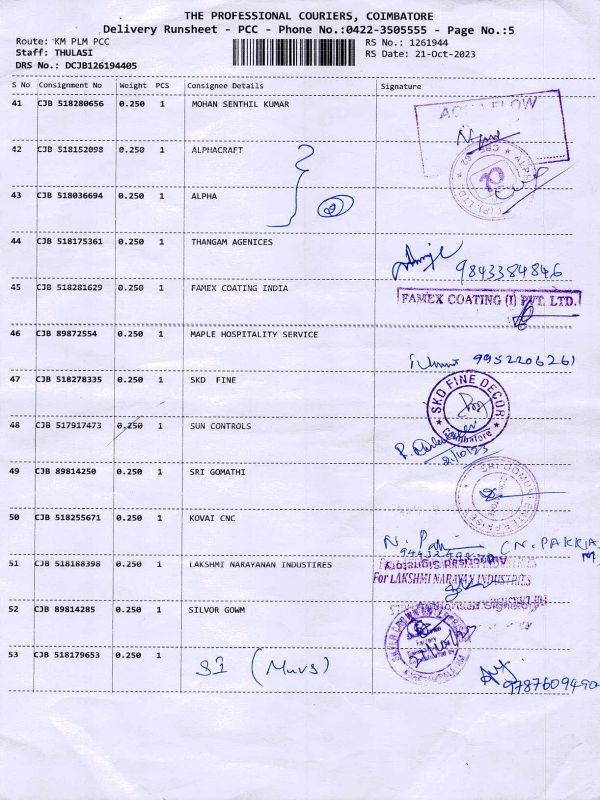 THE PROFESSIONAL COURIERS, COIMBATORE
Delivery Runsheet - PCC - Phone No.:0422-3505555 - Page No.:5
Route: KM PLM PCC
Staff: THULASI
DRS No.: DCJB126194405
RS No.: 1261944
RS Date: 21-Oct-2023
S No Consignment No Weight PCS Consignee Details Signature
41 CJB 518280656 0.250 1 MOHAN SENTHIL KUMAR
42 CJB 518152098 0.250 1 ALPHACRAFT
43 CJB 518036694 0.250 1 ALPHA
44 CJB 518175361 0.250 1 THANGAM AGENICES
9843384846
45 CJB 518281629 0.250 1 FAMEX COATING INDIA
FAMEX COATING (I) PVT. LTD.
46 CJB 89872554 0.250 1 MAPLE HOSPITALITY SERVICE
9952206261
47 CJB 518278335 0.250 1 SKD FINE
SKD FINE DECOR
Coimbatore
48 CJB 517917473 0.250 1 SUN CONTROLS
21/10/23
49 CJB 89814250 0.250 1 SRI GOMATHI
50 CJB 518255671 0.250 1 KOVAI CNC
51 CJB 518188398 0.250 1 LAKSHMI NARAYANAN INDUSTIRES
For LAKSHMI NARAYAN INDUSTRIES
Authorised Signatory
52 CJB 89814285 0.250 1 SILVOR GOWM
53 CJB 518179653 0.250 1 SI (Muvs)
9787609490